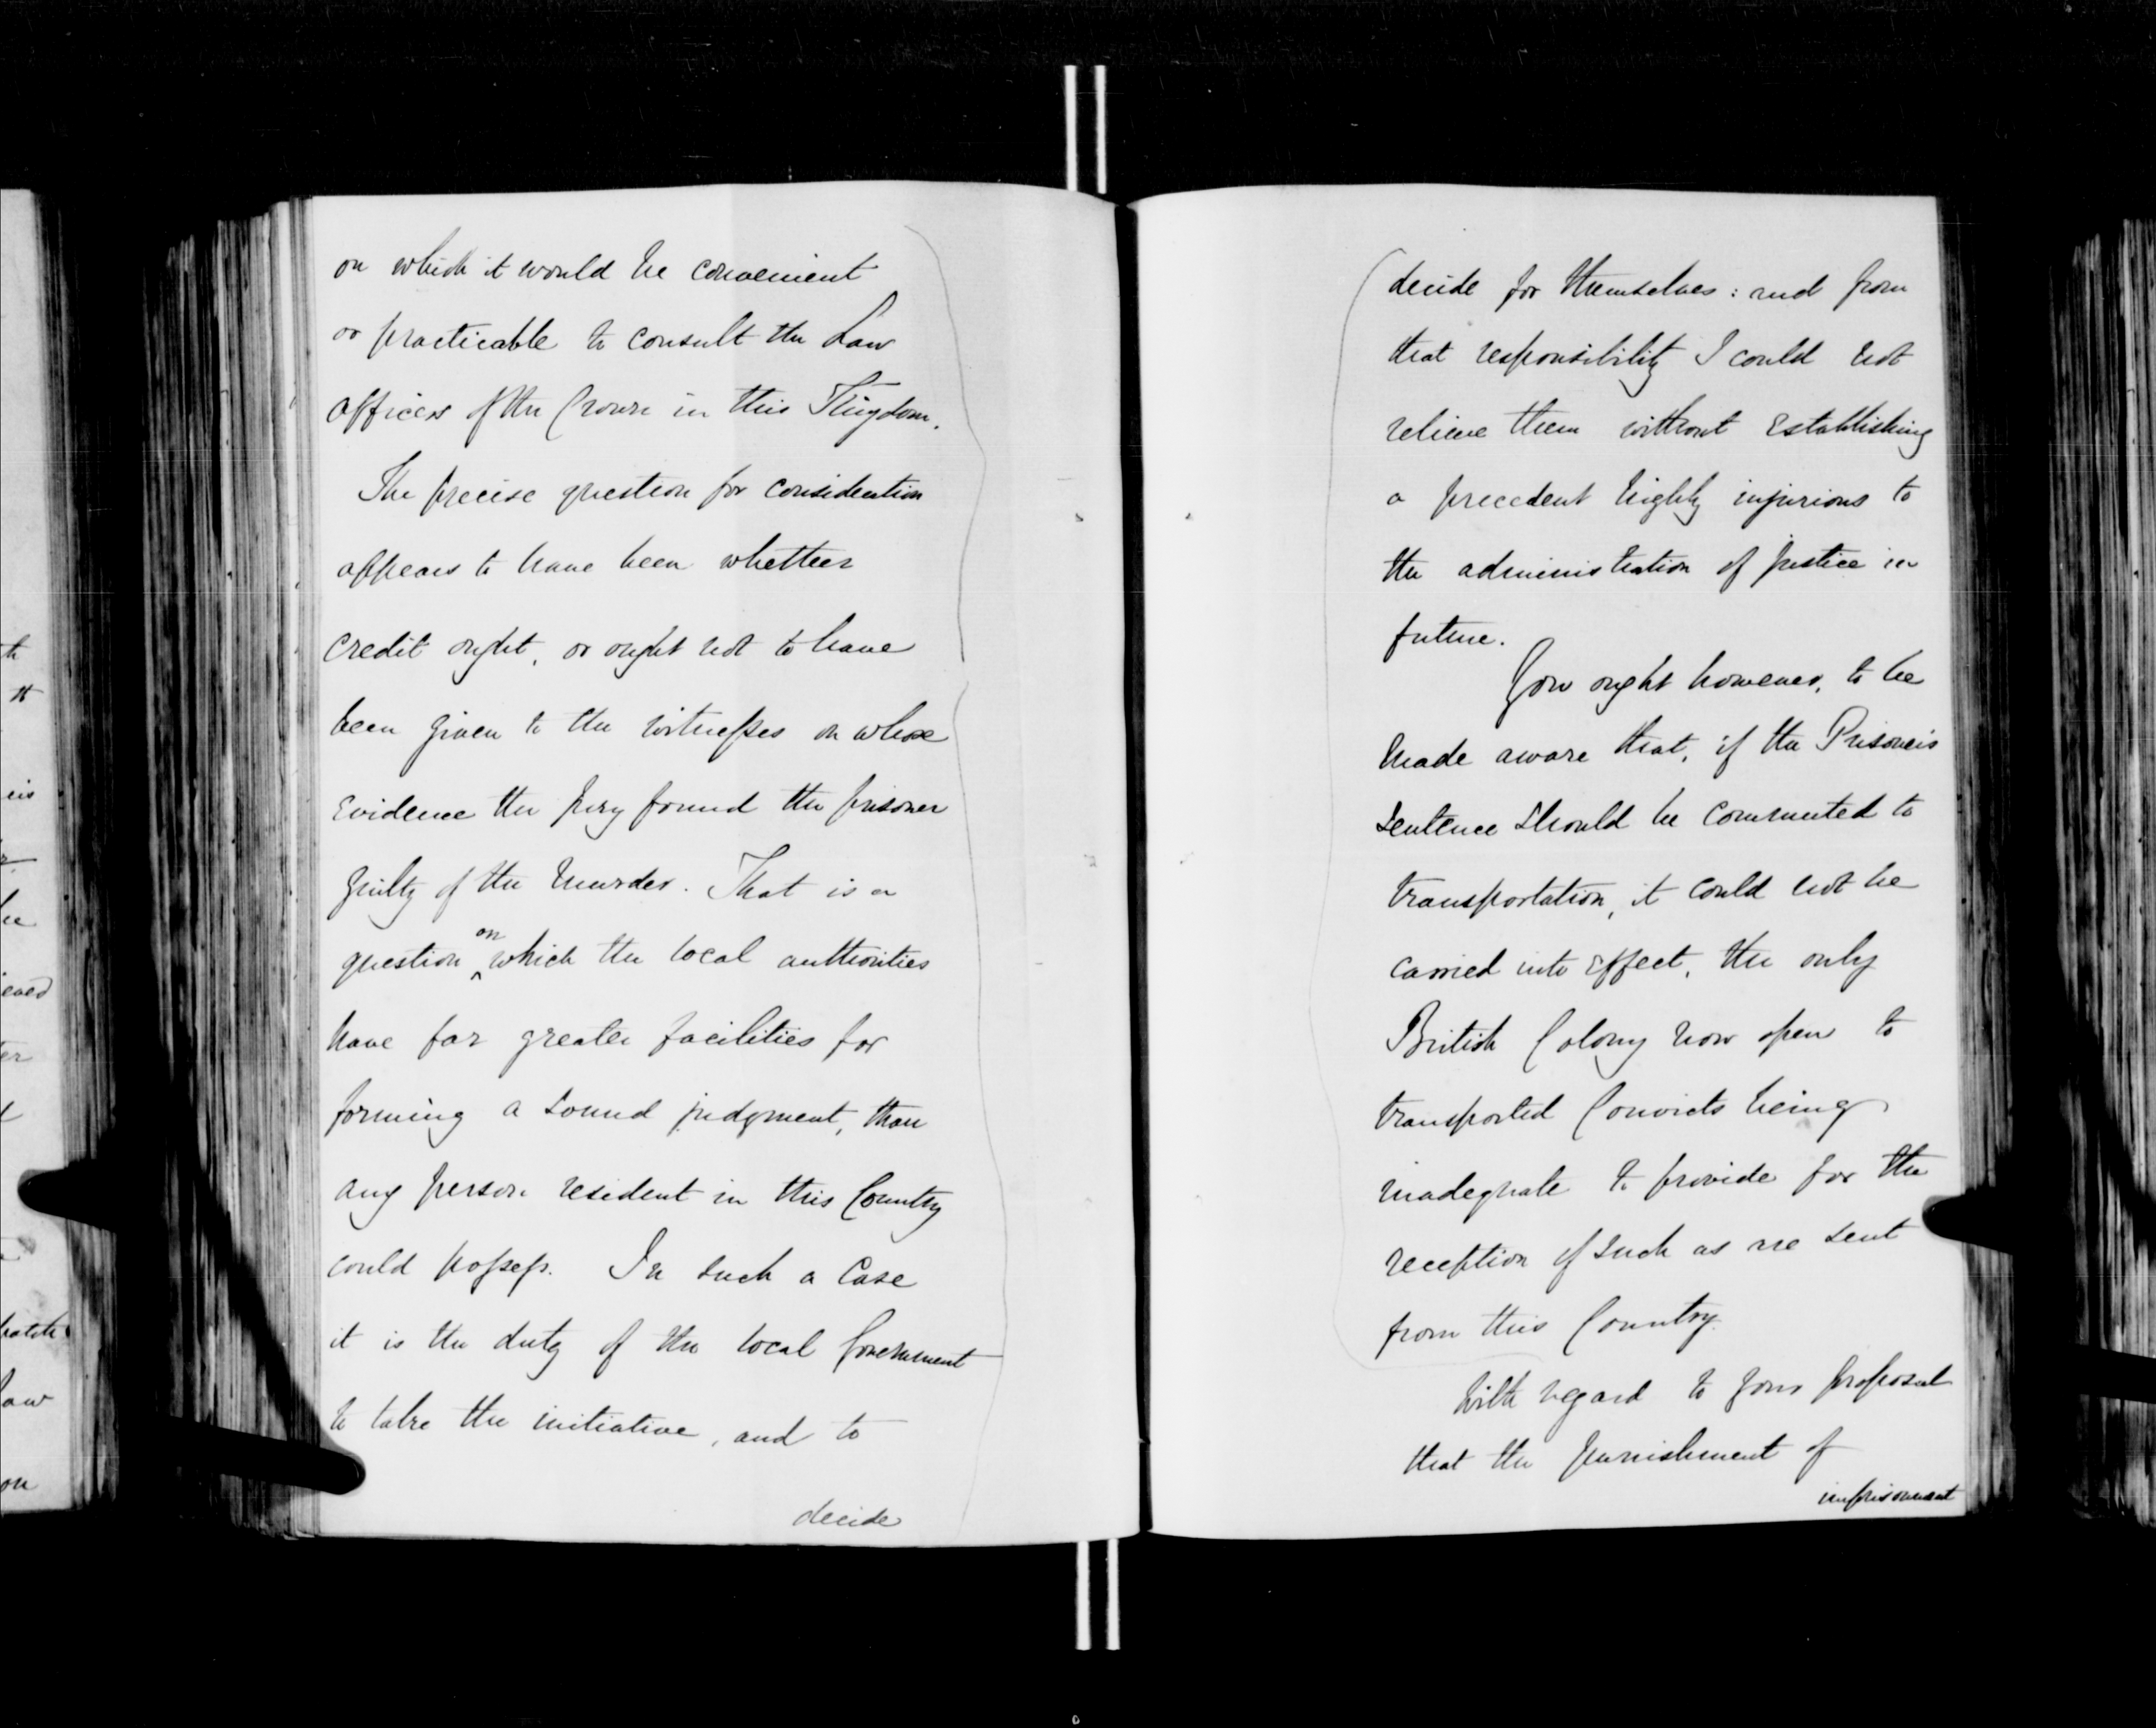 on which it would be convenient
or practicable to consult the Law
officers of the Crown in this Kingdom.
The precise question for consideration
appears to have been whether
credit ought, or ought not to have
been given to the witnesses on whose
evidence the jury found the prisoner
guilty of the Murder. That is a
question on which the local authorities
have far greater facilities for
forming a sound judgment, than
any person resident in this Country
could possess. In such a Case
it is the duty of the local Government
to take the initiative, and to
decide
decide for themselves: and from
that responsibility I could not
relieve them without establishing
a precedent highly injurious to
the administration of justice in
future.
You ought however, to be
made aware that, if the Prisoner's
sentence should be commuted to
transportation, it could not be
carried into effect, the only
British Colony now open to
transported Convicts being
inadequate to provide for the
reception of such as are sent
from this Country.
With regard to your proposal
that the punishment of
imprisonment